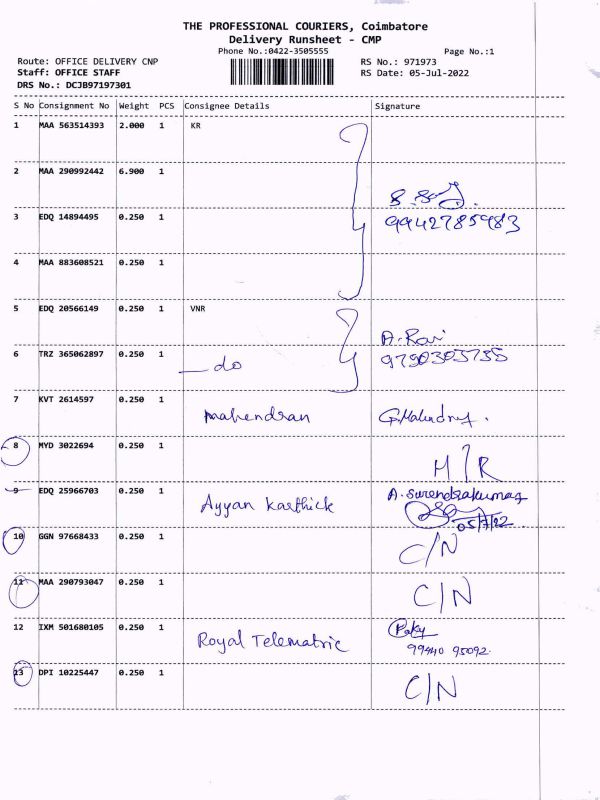 THE PROFESSIONAL COURIERS, Coimbatore
Delivery Runsheet - CMP
Phone No.:0422-3505555
Page No.:1
Route: OFFICE DELIVERY CNP
RS No.: 971973
Staff: OFFICE STAFF
RS Date: 05-Jul-2022
DRS No.: DCJB97197301
S No Consignment No Weight PCS Consignee Details Signature
1 MAA 563514393 2.000 1 KR
2 MAA 290992442 6.900 1
3 EDQ 14894495 0.250 1 9942785983
4 MAA 883608521 0.250 1
5 EDQ 20566149 0.250 1 VNR
A. Ravi
6 TRZ 365062897 0.250 1 do
7 KVT 2614597 0.250 1
mahendran
8 MYD 3022694 0.250 1
M/R
9 EDQ 25966703 0.250 1 A. Surendrakumar
Ayyan Karthick 05/7/22
10 GGN 97668433 0.250 1 C/N
11 MAA 290793047 0.250 1 C/N
12 IXM 501680105 0.250 1
Royal Telematric 99940 95092.
13 DPI 10225447 0.250 1 C/N